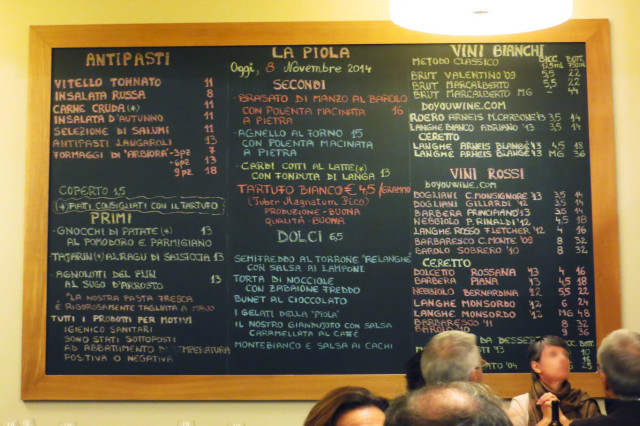 ANTIPASTI
VITELLO TONNATO 11
INSALATA RUSSA 8
CARNE CRUDA (*) 11
INSALATA D'AUTUNNO 11
SELEZIONE DI SALUMI 11
ANTIPASTI LANGAROLI 13
FORMAGGI DI "ARBIORA" -3pz 7
-6pz 13
9pz 18
COPERTO 1,5
(*) PIATTI CONSIGLIATI CON IL TARTUFO
PRIMI
-GNOCCHI DI PATATE (*) 13
AL POMODORO E PARMIGIANO
-TAJARIN (*) AL RAGU DI SALSICCIA 13
-AGNOLOTTI DEL PLIN 13
AL SUGO D'ARROSTO
"LA NOSTRA PASTA FRESCA
È RIGOROSAMENTE TAGLIATA A MANO
TUTTI I PRODOTTI PER MOTIVI
IGIENICO SANITARI
SONO STATI SOTTOPOSTI
AD ABBATTIMENTO DI TEMPERATURA
POSITIVA O NEGATIVA
LA PIOLA
Oggi, 8 Novembre 2014
SECONDI
-BRASATO DI MANZO AL BAROLO
CON POLENTA MACINATA 16
A PIETRA
-AGNELLO AL FORNO 15
CON POLENTA MACINATA
A PIETRA
-CARDI COTTI AL LATTE (*)
CON FONDUTA DI LANGA 13
TARTUFO BIANCO € 4,5/GRAMMO
(Tuber Magnatum Pico)
PRODUZIONE-BUONA
QUALITÀ BUONA
DOLCI 6,5
SEMIFREDDO AL TORRONE "RELANGHE"
CON SALSA AI LAMPONI
TORTA DI NOCCIOLE
CON ZABAIONE FREDDO
BUNET AL CIOCCOLATO
I GELATI DELLA "PIOLA"
IL NOSTRO GIANDUIOTTO CON SALSA
CARAMELLATA AL CAFFÈ
MONTEBIANCO E SALSA AI CACHI
VINI BIANCHI
METODO CLASSICO BICC. 125ml BOTT. 750ml
BRUT VALENTINO '09 5,5 22
BRUT MARCALBERTO 5,5 22
BRUT MARCALBERTO MG - 44
DOYOUWINE.COM
ROERO ARNEIS M.CARBONE '13 3,5 14
LANGHE BIANCO ADRIANO '13 3,5 14
CERETTO
LANGHE ARNEIS BLANGÈ '13 4,5 18
LANGHE ARNEIS BLANGÈ '13 MG 36
VINI ROSSI
DOYOUWINE.COM
DOGLIANI C.MONSIGNORE '13 3,5 14
DOGLIANI GILLARDI '12 3,5 14
BARBERA PRINCIPIANO '13 3,5 14
NEBBIOLO P. RINALDI '12 4,5 18
LANGHE ROSSO FLETCHER '12 4 16
BARBARESCO C.MONTE '09 8 32
BAROLO SOBRERO '10 8 32
CERETTO
DOLCETTO ROSSANA '13 4 16
BARBERA PIANA '13 4,5 18
NEBBIOLO BERNARDINA '12 5,5 22
LANGHE MONSORDO '12 6 24
LANGHE MONSORDO '12 MG 48
BARBARESCO '11 8 32
BAROLO '09 9 36
DA DESSERT
'13
'04